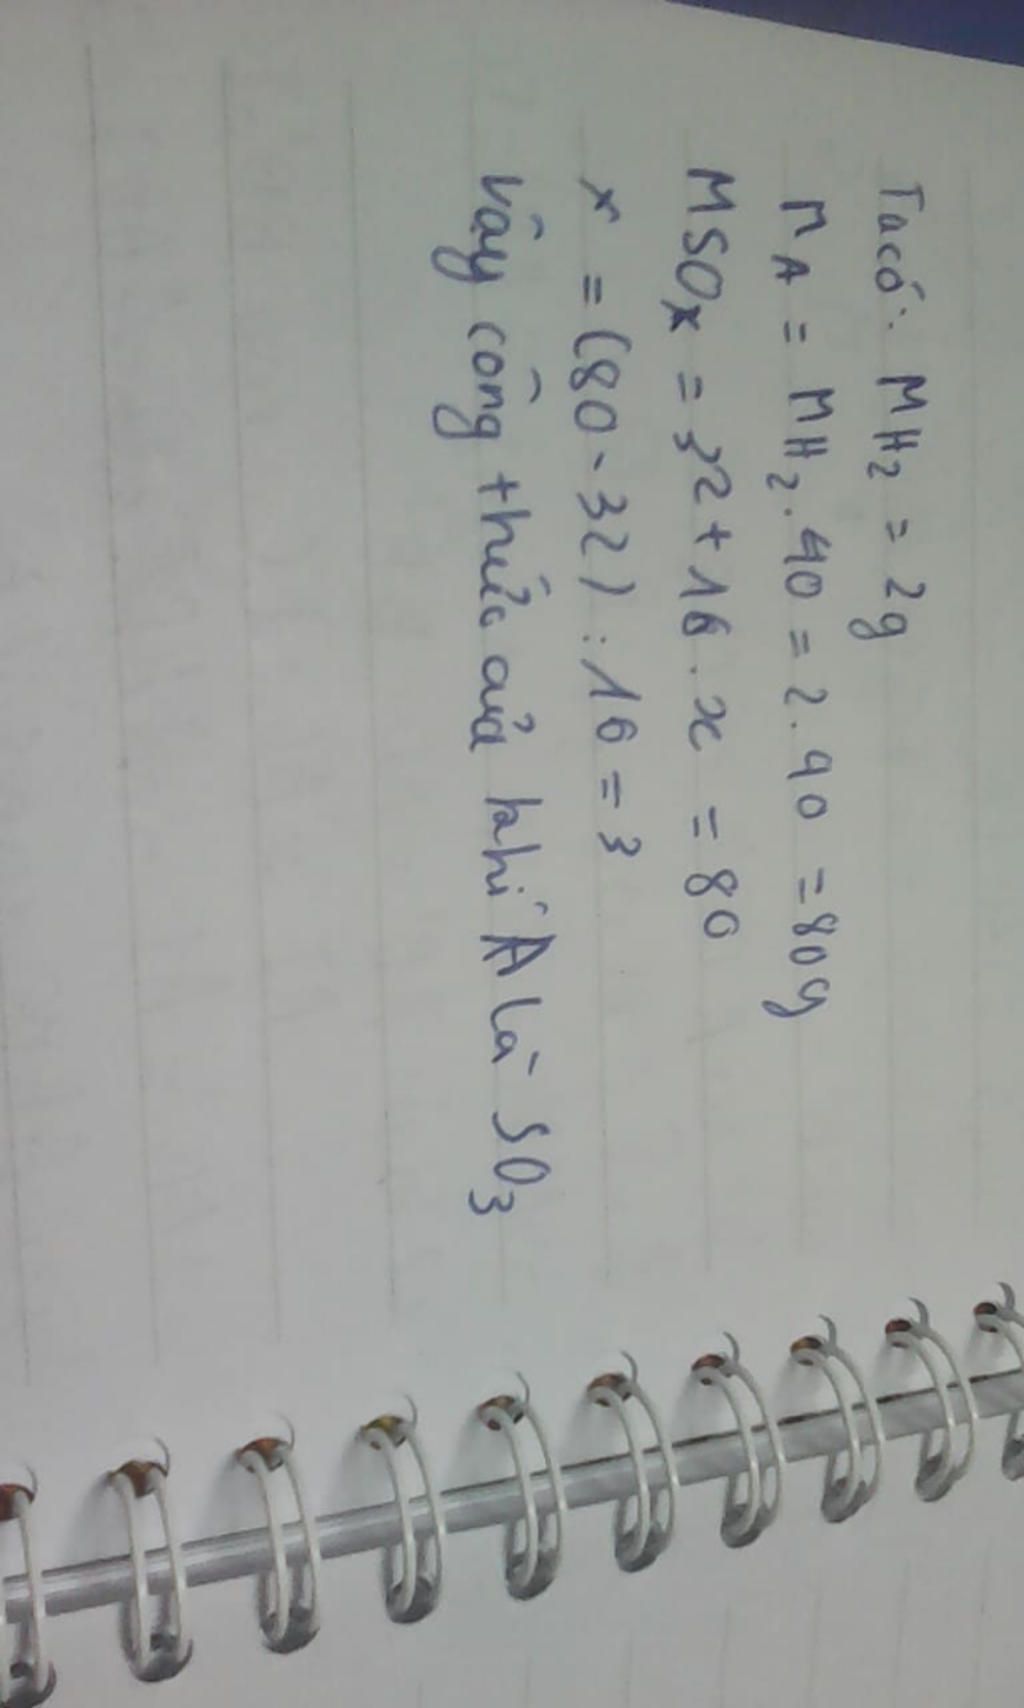 Ta có: MH₂ = 2g
MA = MH₂.40 = 2.40 = 80g
MSOx = 32 + 16.x = 80
x = (80-32):16 = 3
Vậy công thức của khí A là SO₃